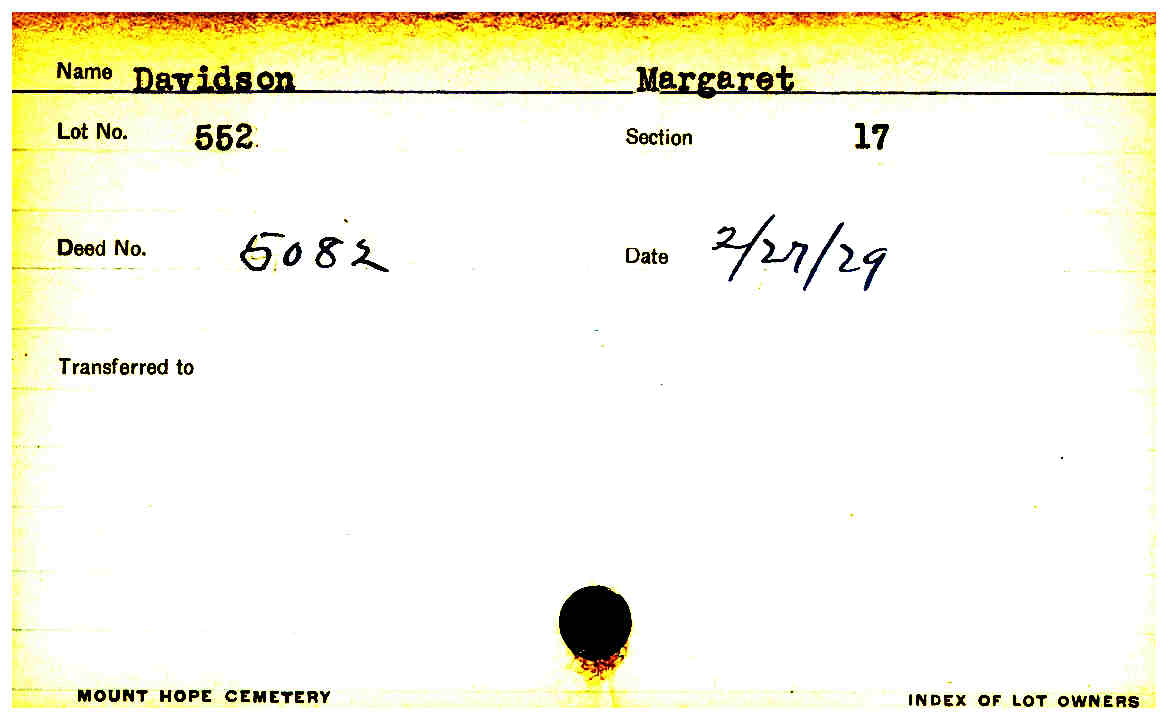 Name Davidson Margaret
Lot No. 552 Section 17
Deed No. 5082 Date 2/27/29
Transferred to
MOUNT HOPE CEMETERY INDEX OF LOT OWNERS